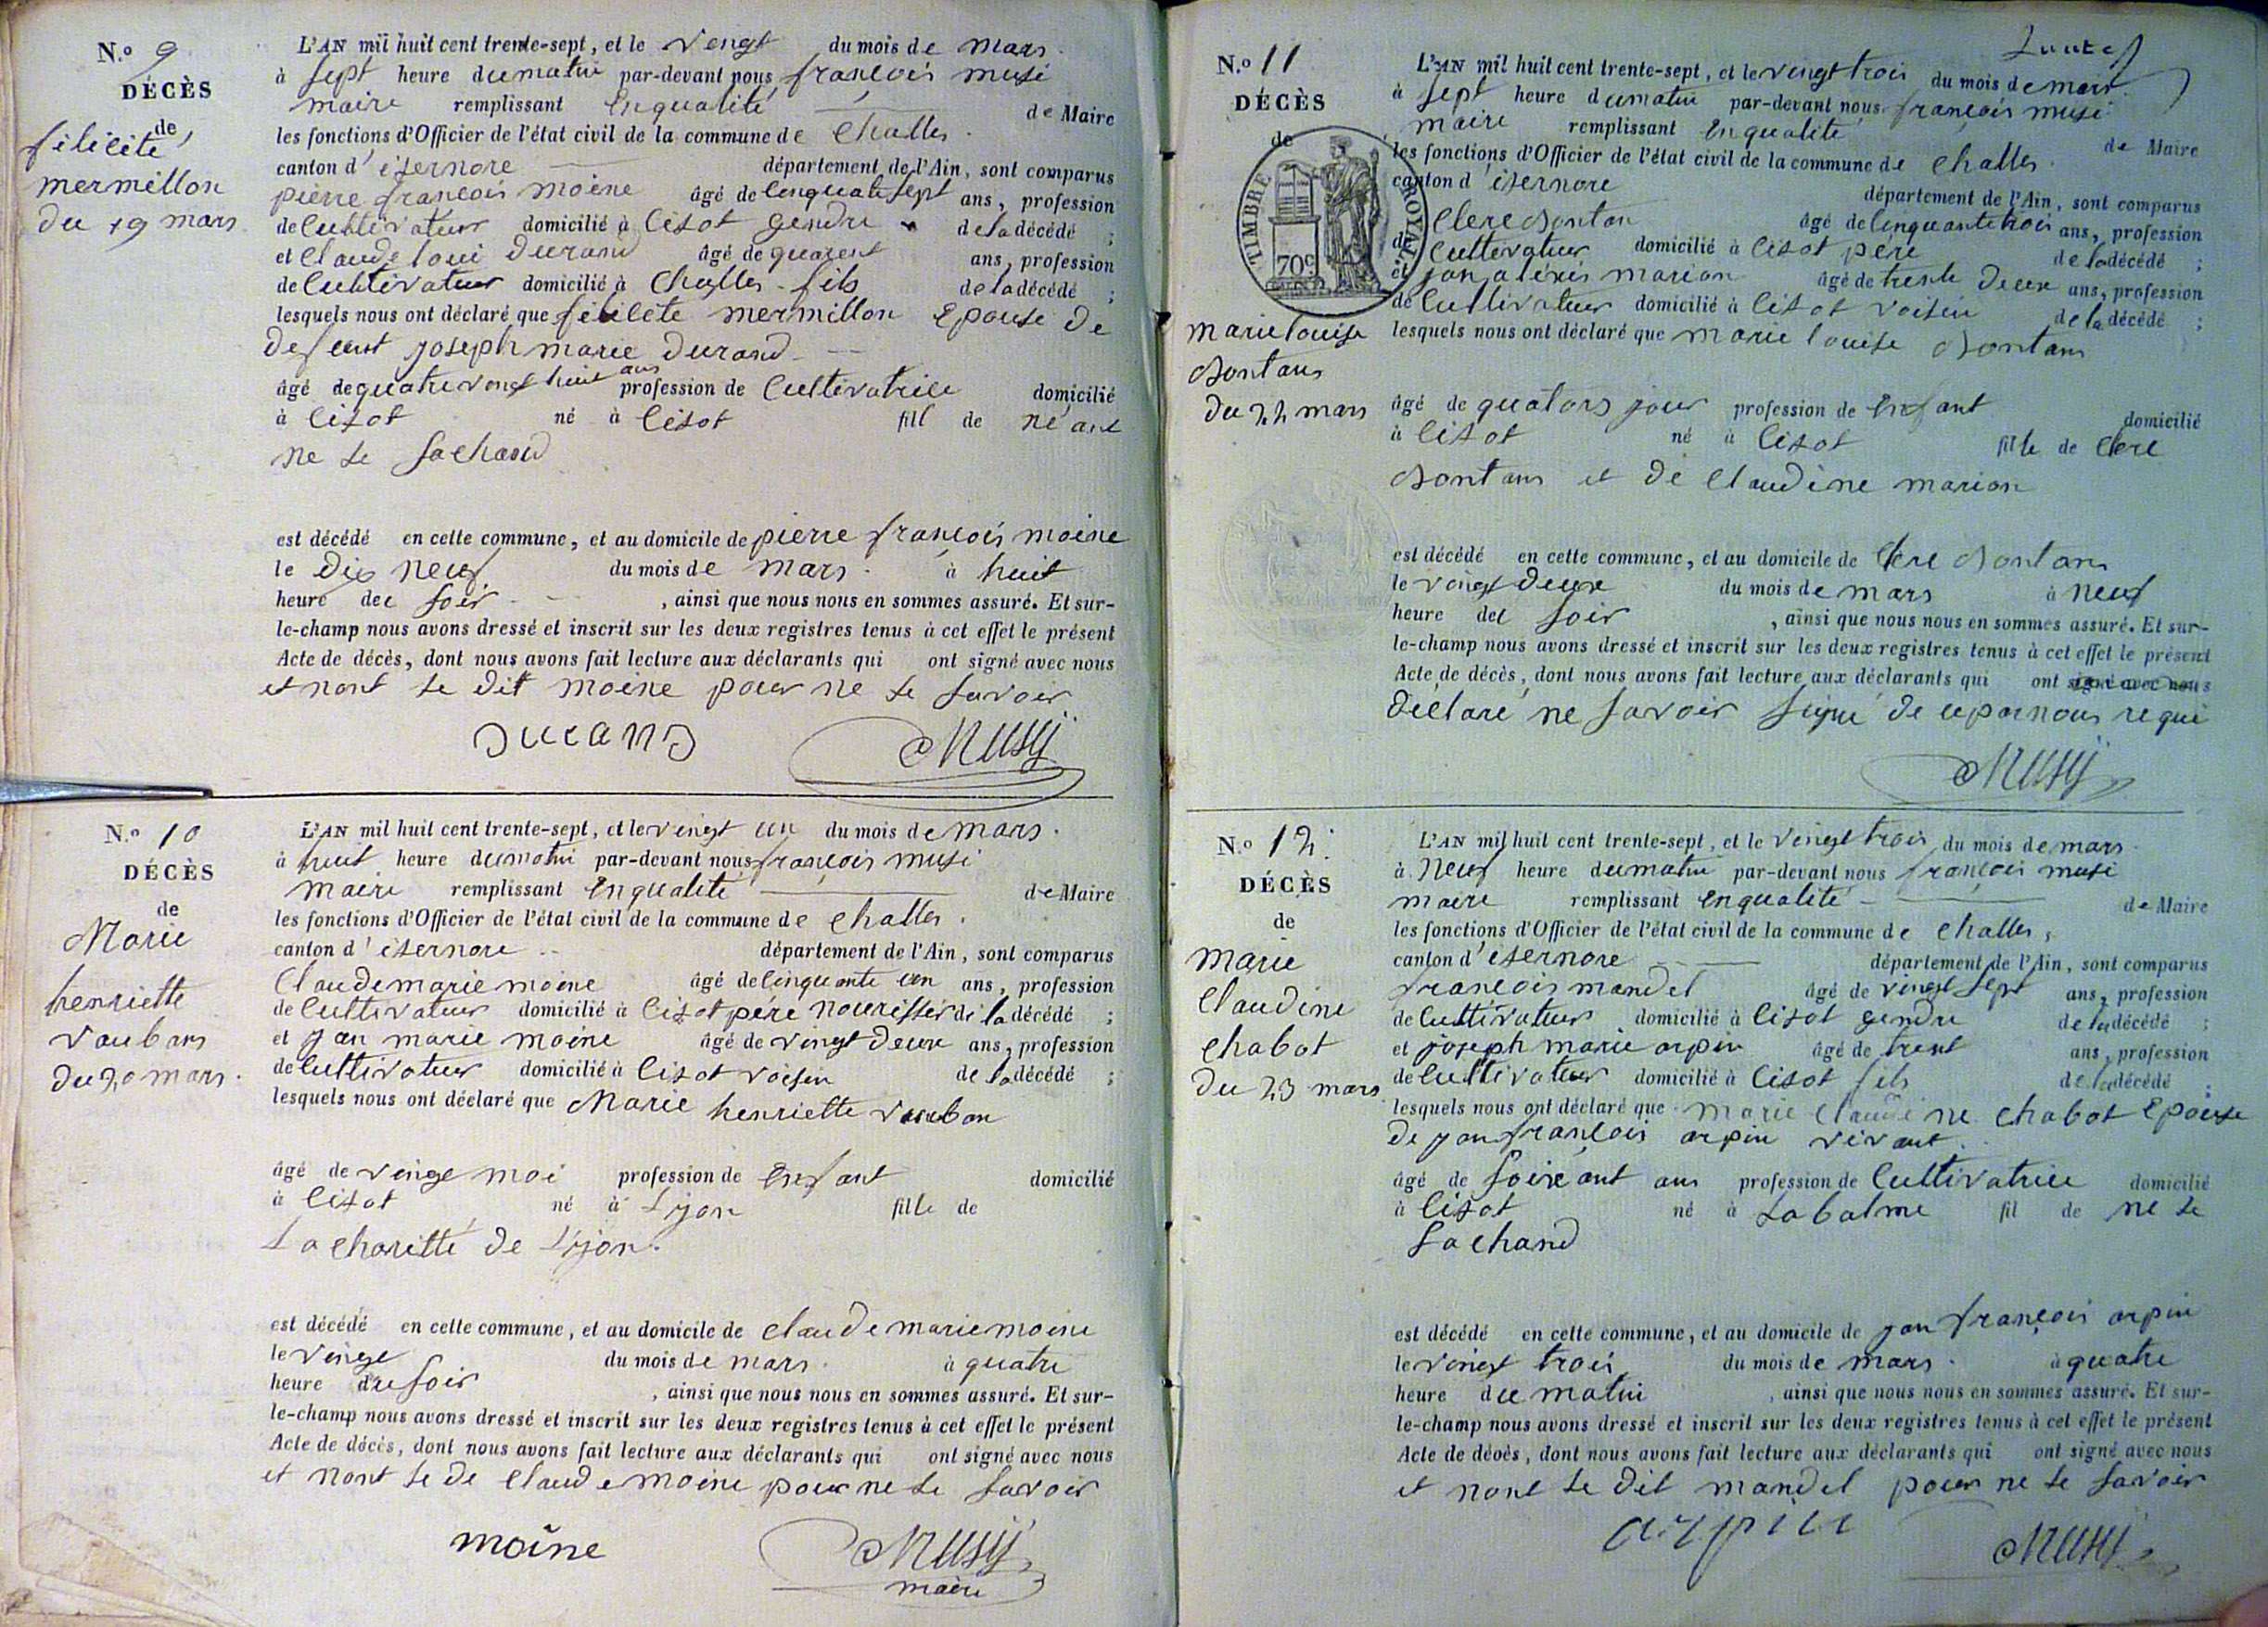 N.° 9
DÉCÈS
de
félicité
mermillon
du 19 mars
L'AN mil huit cent trente-sept, et le vengt du mois de mars.
à sept heure dumatin par-devant nous françois musi
maire remplissant enqualité de Maire
les fonctions d'Officier de l'état civil de la commune de challes.
canton d'isernore département de l'Ain, sont comparus
pierre françois moine âgé de cinquatesept ans, profession
de cultivateur domicilié à cisot gendre de la décédé ;
et claude loui durand âgé de quarent ans, profession
de cultivateur domicilié à challes fils de la décédé ;
lesquels nous ont déclaré que félicité mermillon epouse de
defeunt joseph marie durand
âgé de quatre vengt huit ans profession de cultivatrice domicilié
à cisot né à cisot fill de ne ant
ne se sachand
est décédé en cette commune, et au domicile de pierre françois moine
le dix neuf du mois de mars. à huit
heure deu soir , ainsi que nous nous en sommes assuré. Et sur-
le-champ nous avons dressé et inscrit sur les deux registres tenus à cet effet le présent
Acte de décès, dont nous avons fait lecture aux déclarants qui ont signé avec nous
et nont se dit moine pour ne se savoir
durand Musy
N.° 10
DÉCÈS
de
Marie
henriette
vaubans
du 20 mars.
L'AN mil huit cent trente-sept, et le vengt un du mois de mars.
à huit heure dumatin par-devant nous françois musi
maire remplissant enqualité de Maire
les fonctions d'Officier de l'état civil de la commune de challes.
canton d'isernore département de l'Ain, sont comparus
claudemarie moine âgé de cinquante un ans, profession
de cultivateur domicilié à cisot père nourissié de la décédé ;
et jan marie moine âgé de vingt deux ans, profession
de cultivateur domicilié à cisot voisin de la décédé ;
lesquels nous ont déclaré que Marie henriette vauban
âgé de venge moi profession de enfant domicilié
à cisot né à Lyon fille de
La charitté de Lyon.
est décédé en cette commune, et au domicile de claudemariemoine
le venge du mois de mars. à quatre
heure du soir , ainsi que nous nous en sommes assuré. Et sur-
le-champ nous avons dressé et inscrit sur les deux registres tenus à cet effet le présent
Acte de décès, dont nous avons fait lecture aux déclarants qui ont signé avec nous
et nont se de claude moine pour ne se savoir
moine Musy
maire
N.° 11
DÉCÈS
de
TIMBRE ROYAL.
70c
marie louise
dontans
du 22 mars
L'AN mil huit cent trente-sept, et le vengt trois du mois de mars
à sept heure dumatin par-devant nous françois musi
maire remplissant enqualité de Maire
les fonctions d'Officier de l'état civil de la commune de challes.
canton d'isernore département de l'Ain, sont comparus
clere dontan âgé de cinquantetrois ans, profession
de cultivateur domicilié à cisot père de la décédé ;
et jan alexis marion âgé de trente deux ans, profession
de cultivateur domicilié à cisot voisin de la décédé ;
lesquels nous ont déclaré que marie louise dontans
âgé de quators jour profession de enfant domicilié
à cisot né à cisot fille de clere
dontans et de claudine marion
est décédé en cette commune, et au domicile de clere dontans
le vengt deux du mois de mars à neuf
heure deu soir , ainsi que nous nous en sommes assuré. Et sur-
le-champ nous avons dressé et inscrit sur les deux registres tenus à cet effet le présent
Acte de décès, dont nous avons fait lecture aux déclarants qui ont signé avec nous
déclaré ne savoir signé de ceparnous requi
Musy
N.° 12.
DÉCÈS
de
marie
claudine
chabot
du 23 mars.
L'AN mil huit cent trente-sept, et le vengt trois du mois de mars
à neuf heure dumatin par-devant nous françois musi
maire remplissant enqualité de Maire
les fonctions d'Officier de l'état civil de la commune de challes,
canton d'isernore département de l'Ain, sont comparus
françois mandel âgé de vengt sept ans, profession
de cultivateur domicilié à cisot gendre de la décédé ;
et joseph marie arpin âgé de trent ans, profession
de cultivateur domicilié à cisot fils de la décédé ;
lesquels nous ont déclaré que marie claudine chabot epouse
de jan françois arpin vivant.
âgé de soixant ans profession de cultivatrice domicilié
à cisot né à Labalme fil de ne se
sachand
est décédé en cette commune, et au domicile de jan françois arpin
le vengt trois du mois de mars. à quatre
heure du matin , ainsi que nous nous en sommes assuré. Et sur-
le-champ nous avons dressé et inscrit sur les deux registres tenus à cet effet le présent
Acte de décès, dont nous avons fait lecture aux déclarants qui ont signé avec nous
et nont se dit mandel pour ne se savoir
arpin Musy